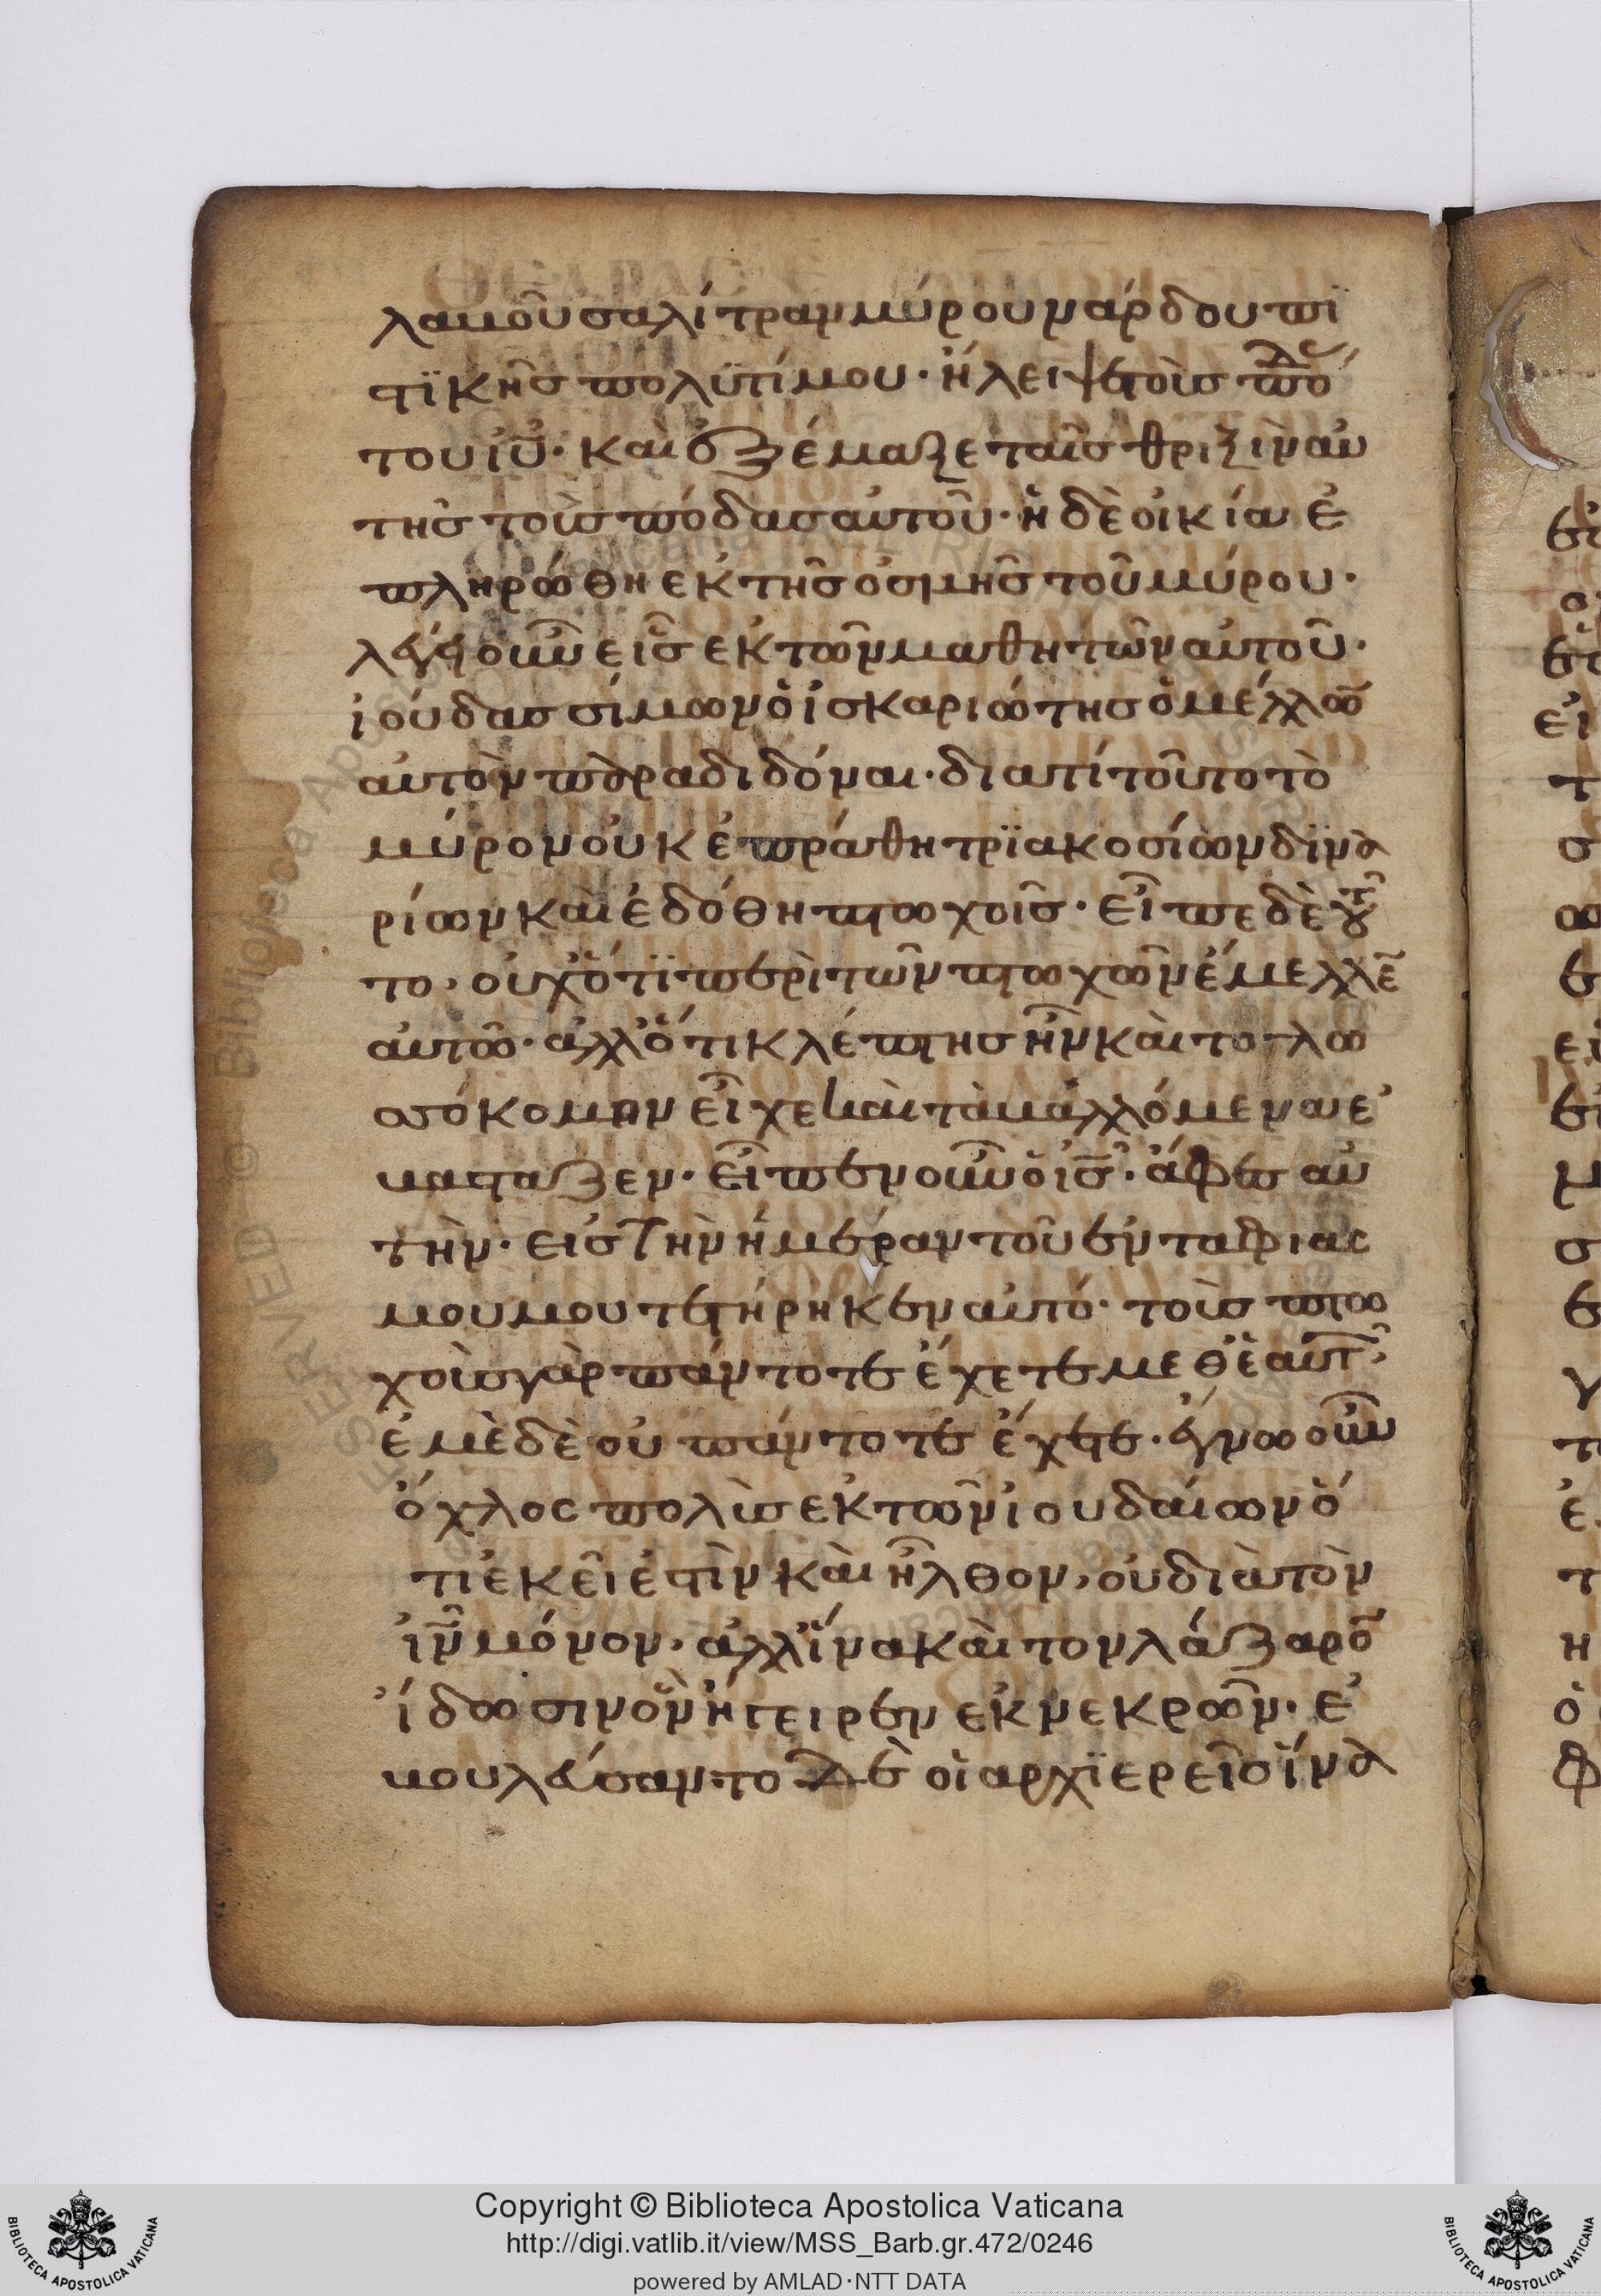 λαμοῦσα λίτραν μύρου νάρδου πϊ
στϊκῆς πολϋτίμου· ἤλειψε τοὺς πο̅δ
του ἰ̅υ̅· καὶ ἐξέμαξε ταῖς θριξὶν αὐ
τῆς τοὺς πόδας αὐτοῦ· ἡ δὲ οἰκία ἐ
πληρώθη ἐκ τῆς ὀσμῆς τοῦ μύρου·
λέγει οὖν εἷς ἐκ τῶν μαθητῶν αὐτοῦ·
ἰούδας σίμων ὁ ἰσκαριώτης ὁ μέλλω̅
αὐτὸν παραδιδόναι· διατί τοῦτο τὸ
μύρον οὐκ ἐπράθη τρϊακοσίων δϊνα
ρίων καὶ ἐδόθη πτωχοῖς· εἶπε δὲ τοῦ
το, οὐχ ὅτϊ περὶ τῶν πτωχῶν ἔμελλε̅
αὐτῶ· ἀλλ ὅτι κλέπτης ἦν καὶ το γλω
σσόκομον εἶχε καὶ τὰ μαλλόμενα ἐ
μάσταζεν· εἶπεν οὖν ὁ ι̅ς̅· ἄφες αὐ
τὴν· εἰς τὴν ἡμέραν τοῦ ἐνταφιας
μου μου τετήρηκεν αὐτό· τοὺς πτω
χοὺς γὰρ πάντοτε ἔχετε μεθ ἑαυτ̅
ἐμὲ δὲ οὐ πάντοτε ἔχετε· ἔγνω οὖν
ὄχλος πολὺς ἐκ τῶν ἰουδαίων ὅ
τι ἐκεῖ ἐστὶν καὶ ἦλθον, οὐ διὰ τὸν
ι̅ν̅ μόνον· ἀλλ ἵνα καὶ τον λάζαρο̅
ἴδωσιν ὃν ἤγειρεν ἐκ νεκρῶν· ἐ
μουλεύσαντο δὲ οἱ αρχϊερεῖς ἵνα
Copyright © Biblioteca Apostolica Vaticana
http://digi.vatlib.it/view/MSS_Barb.gr.472/0246
powered by AMLAD·NTT DATA
BIBLIOTECA APOSTOLICA VATICANA
BIBLIOTECA APOSTOLICA VATICANA